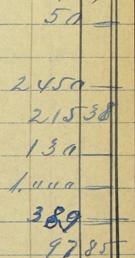 50
2450
215 38
130
1.000
389
97 85